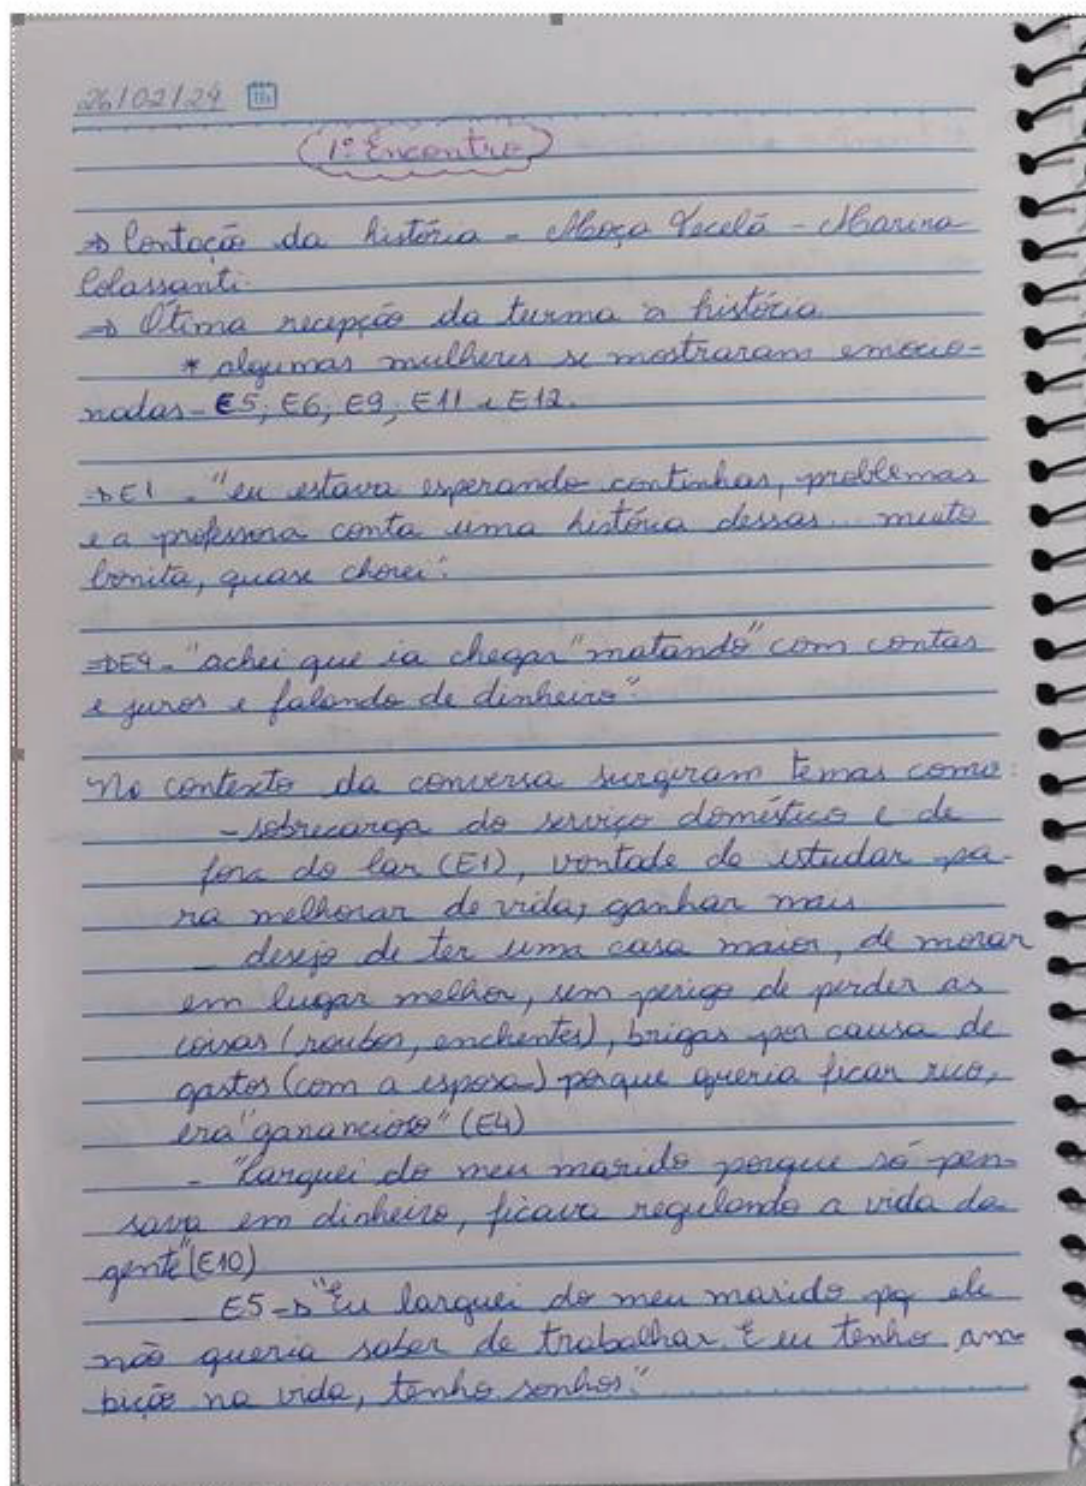 26/02/24
1º Encontro
⇒ Contação da história - Moça Tecelã - Marina
Colassanti.
⇒ Ótima recepção da turma à história.
* algumas mulheres se mostraram emocio-
nadas - E5, E6, E9, E11 e E12.
⇒ E1 - "eu estava esperando continhas, problemas
e a professora conta uma história dessas... muito
bonita, quase chorei".
⇒ E9 - "achei que ia chegar "matando" com contas
e juros e falando de dinheiro".
No contexto da conversa surgiram temas como:
- sobrecarga do serviço doméstico e de
fora do lar (E1), vontade de estudar pa-
ra melhorar de vida, ganhar mais
- desejo de ter uma casa maior, de morar
em lugar melhor, sem perigo de perder as
coisas (roubos, enchentes), brigas por causa de
gastos (com a esposa) porque queria ficar rico,
era "ganancioso" (E4)
- "Larguei do meu marido porque só pen-
sava em dinheiro, ficava regulando a vida da
gente" (E10)
E5 → "Eu larguei do meu marido pq ele
não queria saber de trabalhar. E eu tenho am-
bição na vida, tenho sonhos."